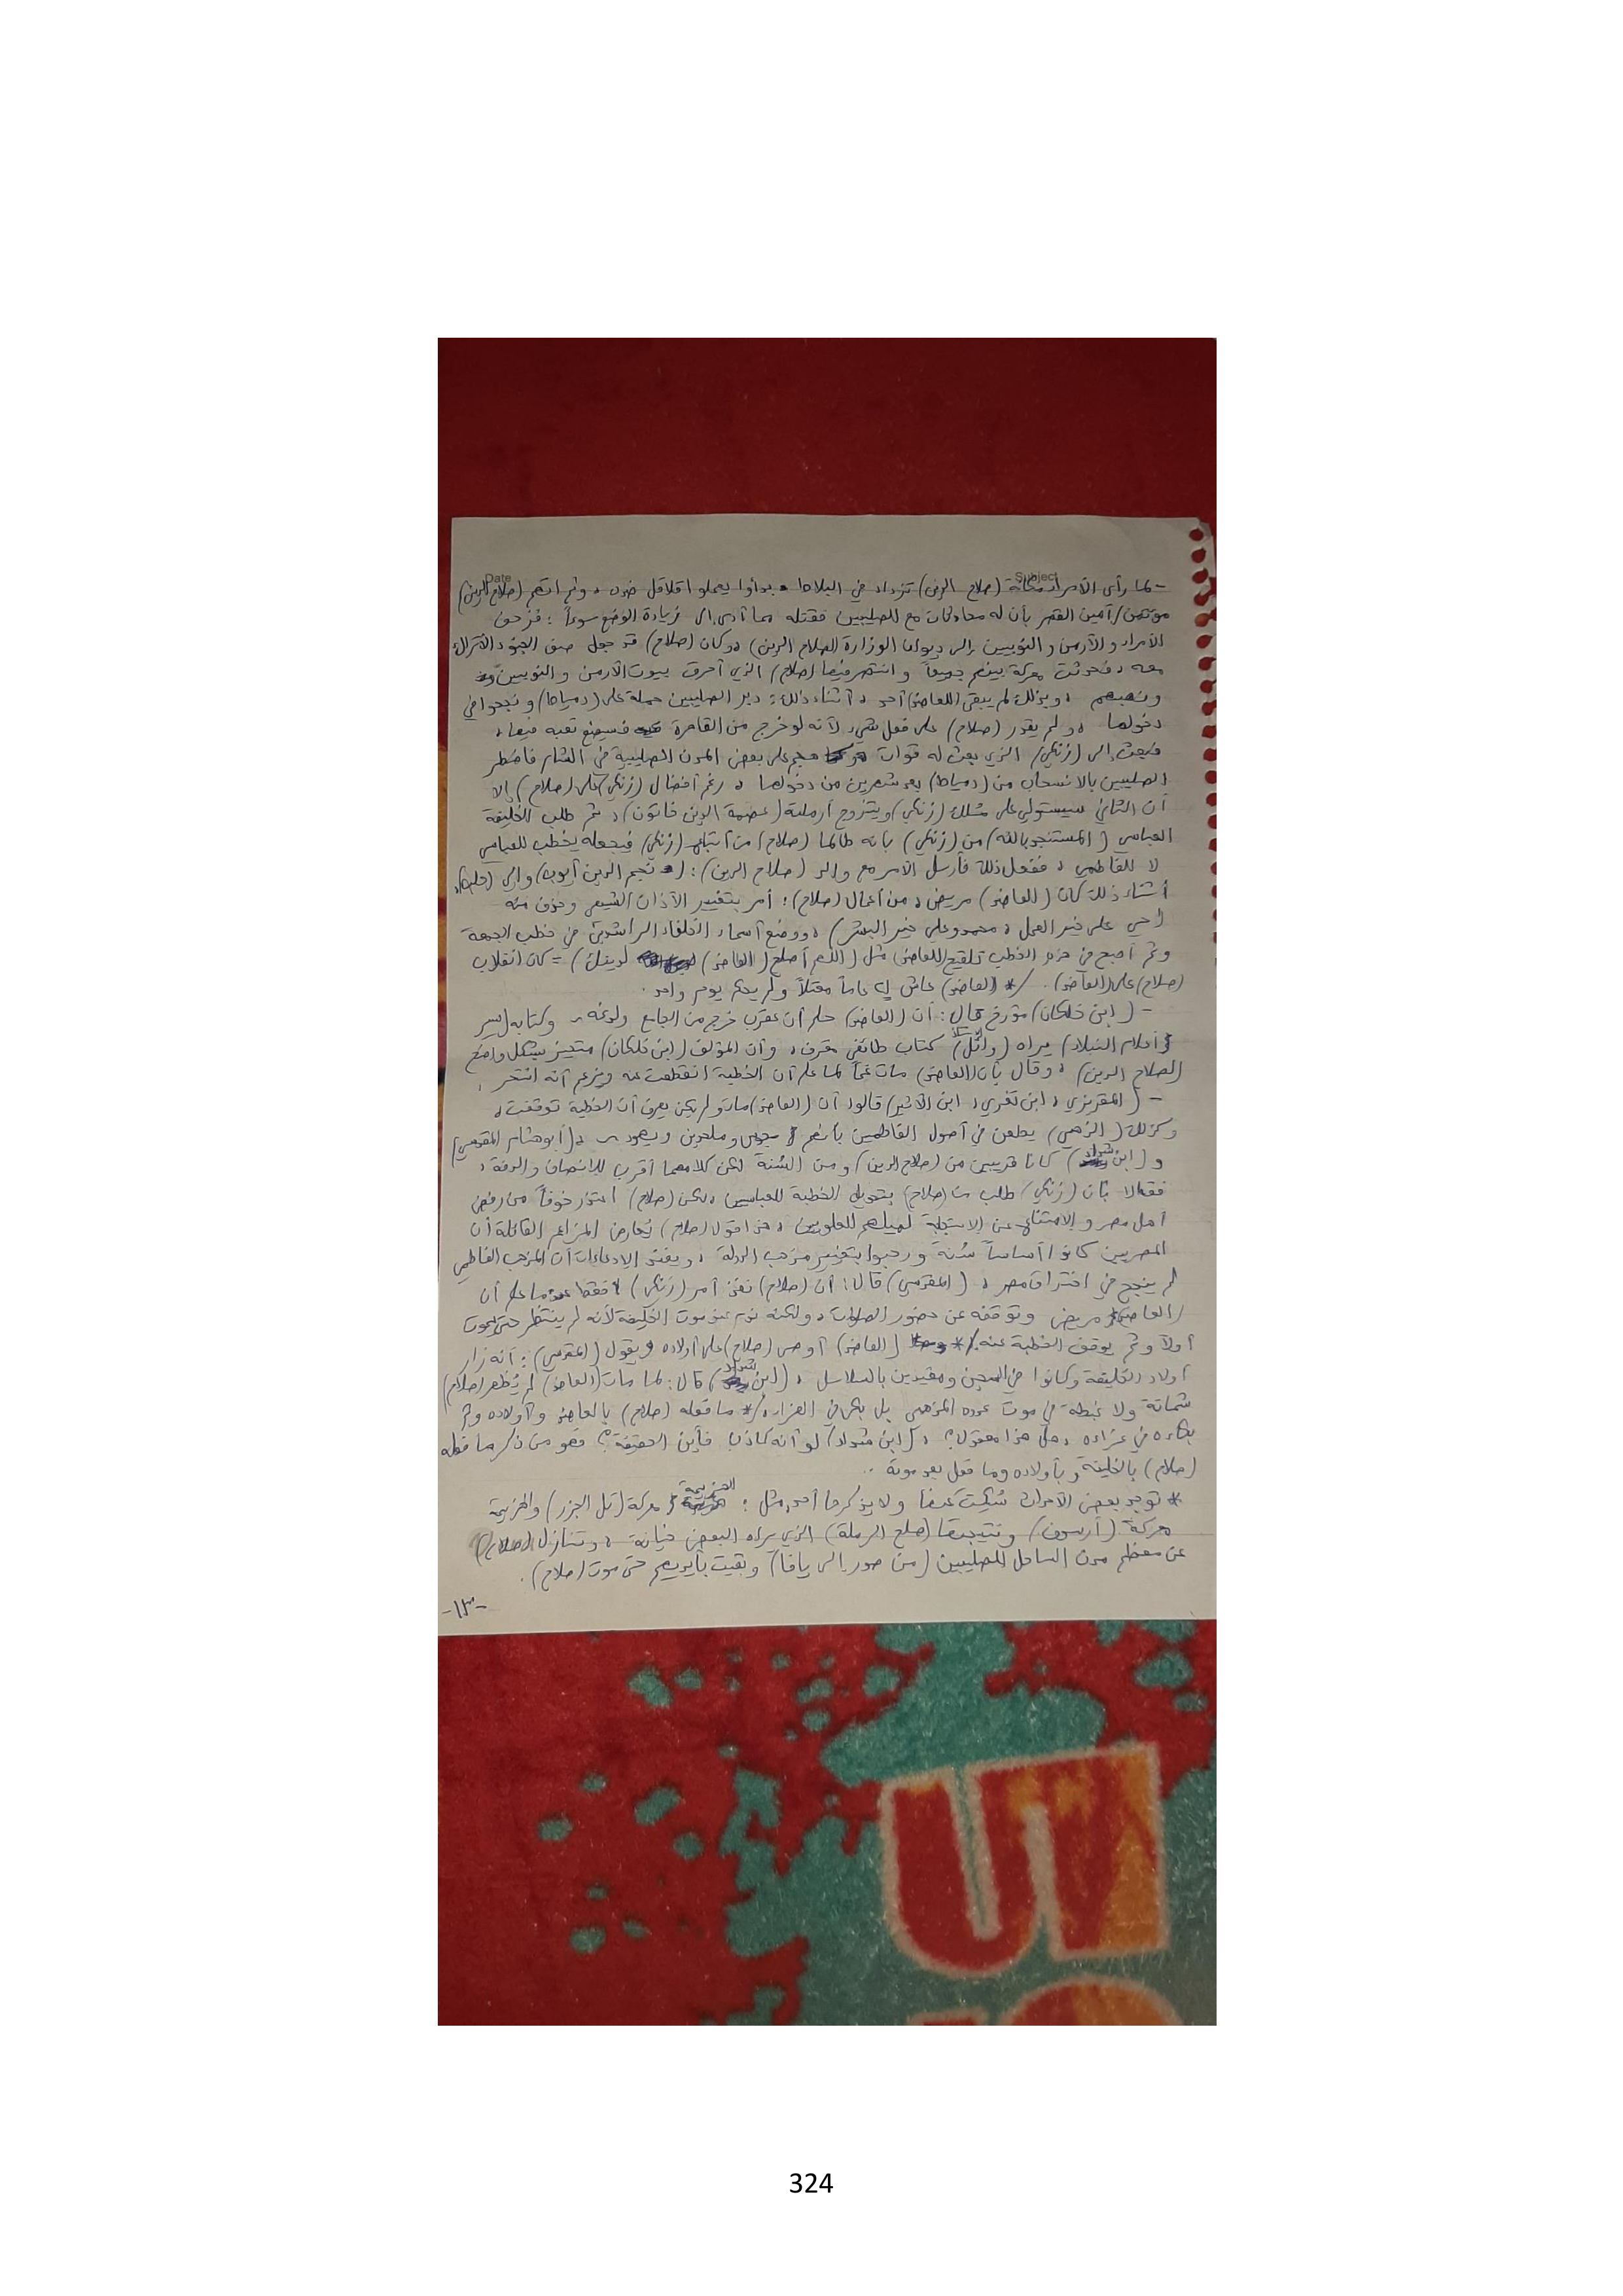 Date Subject
- لما رأى الأمراء مكانة (صلاح الدين) تزداد في البلاط، بدأوا يعملوا قلاقل ضده، وتم اتهم (صلاح الدين)
مؤتمن/أمين القصر بأن له معادثات مع الصليبيين فقتله مما أدى إلى زيادة الوضع سوءاً: فزحف
الأمراء والأرمن والنوبيين إلى ديوان الوزارة (لصلاح الدين)، وكان (صلاح) قد جعل صف الجنود الأتراك
معه، فحدثت معركة بينهم جميعاً وانتصر فيها (صلاح) الذي أحرق بيوت الأرمن والنوبيين
ونهبهم، وبذلك لم يبقى (للعاضد) أحد، أثناء ذلك: دبر الصليبيين حملة على (دمياط) ونجحوا في
دخولها، ولم يقدر (صلاح) على فعل شيء لأنه لو خرج من القاهرة فسيضيع تعبه فيها،
فبعث إلى (زنكي) الذي بعث له قوات هجم على بعض المدن الصليبية في الشام فاضطر
الصليبيين بالانسحاب من (دمياط) بعد شهرين من دخولها، رغم أفضال (زنكي) على (صلاح) إلا
أن الثاني سيستولي على مُلك (زنكي) ويتزوج أرملته (عصمة الدين خاتون)، ثم طلب الخليفة
العباسي (المستنجد بالله) من (زنكي) بأنه طالما (صلاح) من أتباع (زنكي) فيجعله يخطب للعباسي
لا للفاطمي، ففعل ذلك فأرسل الأمر مع والد (صلاح الدين): (نجم الدين أيوب) والي (حلب)،
أثناء ذلك كان (العاضد) مريض، من أعمال (صلاح): أمر بتغيير الآذان الشيعي وحذف منه
(حي على خير العمل، محمد وعلي خير البشر)، ووضع أسماء الخلفاء الراشدين في خطب الجمعة
وتم أصبح في هذه الخطب تلقيح للعاضد مثل (اللهم أصلح (العاضد) لدينك) = كان انقلاب
(صلاح) على (العاضد). /* (العاضد) عاش عاماً معتلاً ولم يحكم يوم واحد.
- (ابن خلكان) مؤرخ قال: أن (العاضد) حلم أن عقرب خرج من الجامع ولدغه، وكتابه (سير
أعلام النبلاء) يراه (وائل) كتاب طائفي مقرف، وأن المؤلف (ابن خلكان) متحيز بشكل واضح
(لصلاح الدين)، وقال بأن (العاضد) مات غماً لما علم أن الخطبة انقطعت عنه ويزعم أنه انتحر،
- (المقريزي، ابن تغري، ابن الأثير) قالوا أن (العاضد) مات ولم يكن يعرف أن الخطبة توقفت،
وكذلك (الذهبي) يطعن في أصول الفاطميين بأنهم مجوس وملحدين ويهود، (أبو هشام المقدسي)
و (ابن شداد) كانا قريبين من (صلاح الدين) ومن السُنة لكن كلامهما أقرب للإنصاف والدقة،
فقالا بأن (زنكي) طلب من (صلاح) بتحويل الخطبة للعباسيين، لكن (صلاح) اعتذر خوفاً من رفض
أهل مصر والامتناع عن الاستجابة لميلهم للعلويين، هذا قول (صلاح) يُعارض المزاعم القائلة أن
المصريين كانوا أساساً سُنة ورحبوا بتغيير مذهب الدولة، ويفند الادعاءات أن المذهب الفاطمي
لم ينجح في اختراق مصر، (المقدسي) قال: أن (صلاح) نفذ أمر (زنكي) فقط عندما علم أن
(العاضد) مريض وتوقفه عن حضور الصلوات، ولكنه ندم عند موت الخليفة لأنه لم ينتظر حتى يموت
أولاً وتم يوقف الخطبة عنه. /* (العاضد) أوصى (صلاح) على أولاده ويقول (المقدسي): أنه زار
أولاد الخليفة وكانوا في السجن ومقيدين بالسلاسل، (ابن شداد) قال: لما مات (العاضد) لم يُظهر (صلاح)
شماتة ولا غبطة في موت عدوه المذهبي بل بكى في العزاء، /* ما فعله (صلاح) بالعاضد وأولاده وتم
بكاءه في عزاءه، هل هذا معقول؟، (ابن شداد) لو أنه كاذب فأين الحقيقة؟ فهو من ذكر ما فعله
(صلاح) بالخليفة وبأولاده وما فعل بعد موته..
* توجد بعض الأحداث سُكت عنها ولا يذكرها أحد، مثل: الهزيمة معركة (تل الجزر) والهزيمة
معركة (أرسوف) ونتيجتها (صلح الرملة) الذي يراه البعض خيانة، وتنازل (صلاح)
عن معظم مدن الساحل للصليبيين (من صور إلى يافا) وبقيت بأيديهم حتى موت (صلاح).
-١٣-
324